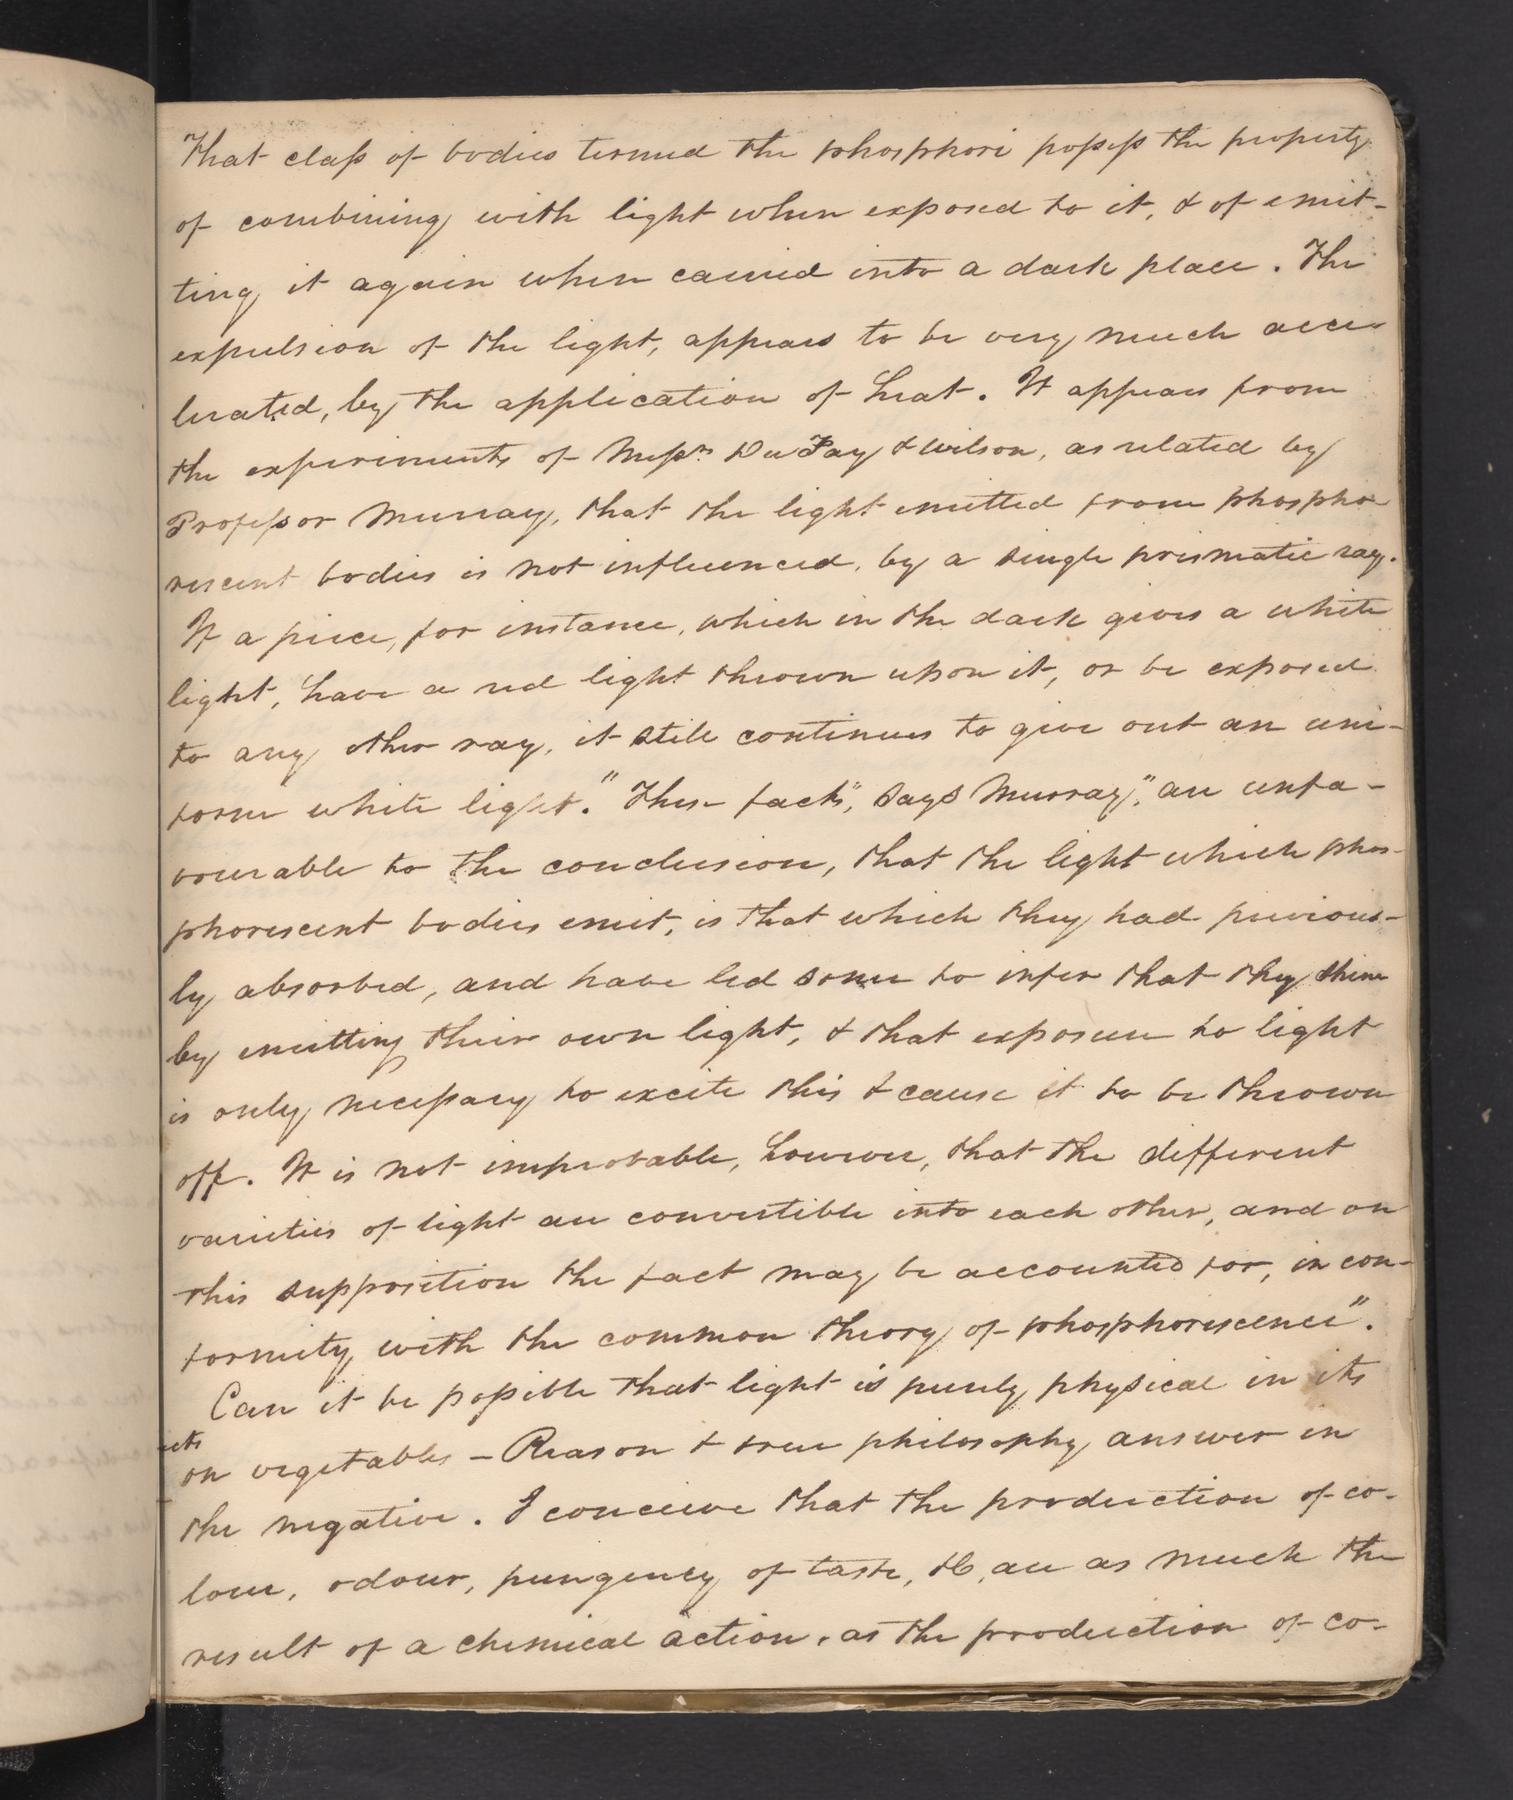 That claſs of bodies termed the phosphori poſseſs the property
of combining with light when exposed to it, & of emit-
ting it again when carried into a dark place. The
expulsion of the light, appears to be very much acce-
lerated, by the application of heat. It appears from
the experiments of Meſsrs Du Fay & Wilson, as related by
Profeſsor Murray, that the light emitted from phospho-
rescent bodies is not influenced, by a single prismatic ray.
If a piece, for instance, which in the dark gives a white
light, have a red light thrown upon it, or be exposed
to any other ray, it still continues to give out an uni-
form white light." These facts", says Murray", are unfa-
vourable to the conclusion, that the light which phos-
phorescent bodies emit, is that which they had previous-
ly absorbed, and have led some to infer that they shine
by emitting their own light, & that exposure to light
is only neceſsary to excite this & cause it to be thrown
off. It is not improbable, however, that the different
varieties of light are convertible into each other, and on
this supposition the fact may be accounted for, in con-
formity with the common theory of phosphorescence".
Can it be poſsible that light is purely physical in its
on vegetables - Reason & true philosophy answer in
the negative. I conceive that the production of co-
lour, odour, pungency of taste, &c, are as much the
result of a chemical action, as the production of co-